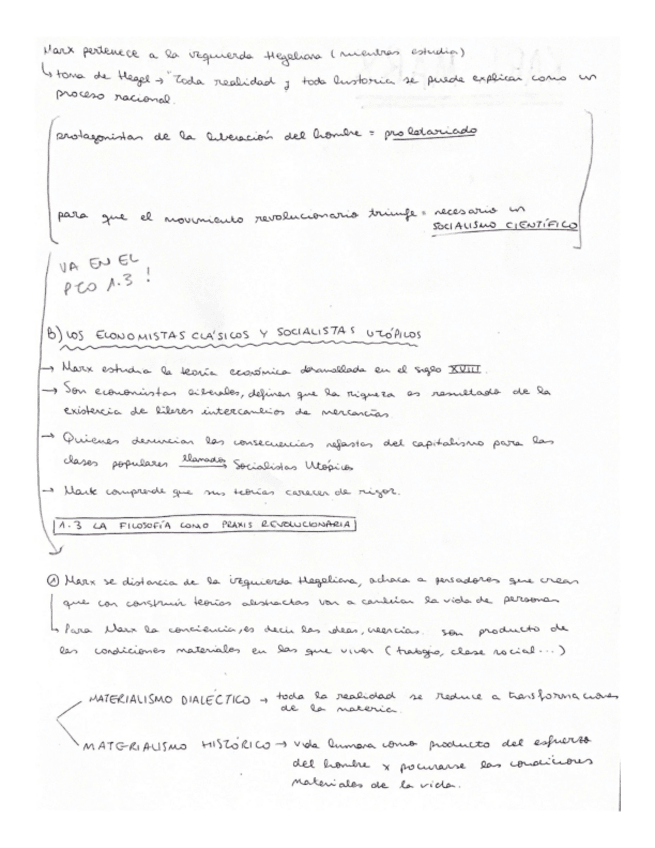 Marx pertenece a la izquierda Hegeliana (mientras estudia)
↳ toma de Hegel → "Toda realidad y toda historia se puede explicar como un
proceso racional.
protagonistas de la liberación del hombre = proletariado
para que el movimiento revolucionario triunfe = necesario un
SOCIALISMO CIENTÍFICO
VA EN EL
PTO 1.3 !
B) LOS ECONOMISTAS CLÁSICOS Y SOCIALISTAS UTÓPICOS
→ Marx estudia la teoría económica desarrollada en el siglo XVIII.
→ Son economistas liberales, definen que la riqueza es resultado de la
existencia de libres intercambios de mercancías.
→ Quienes denuncian las consecuencias nefastas del capitalismo para las
clases populares llamados Socialistas Utópicos
→ Mark comprende que sus teorías carecen de rigor.
1.3 LA FILOSOFÍA COMO PRAXIS REVOLUCIONARIA
① Marx se distancia de la izquierda Hegeliana, achaca a pensadores que crean
que con construir teorías abstractas van a cambiar la vida de personas
↳ Para Marx la conciencia, es decir las ideas, creencias. son producto de
las condiciones materiales en las que viven (trabajo, clase social...)
MATERIALISMO DIALÉCTICO → toda la realidad se reduce a transformaciones
de la materia.
MATERIALISMO HISTÓRICO → vida humana como producto del esfuerzo
del hombre x procurarse las condiciones
materiales de la vida.